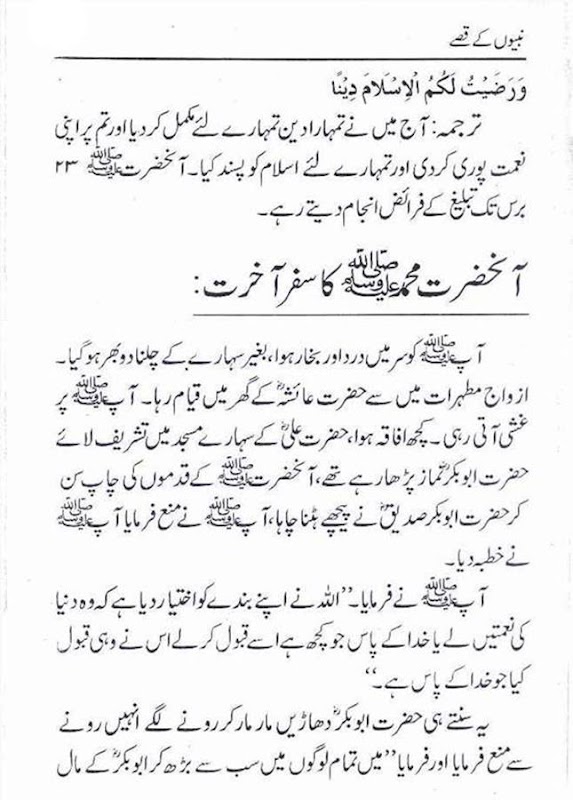 نبیوں کے قصے
وَرَضَیْتُ لَکُمُ الْاِسْلَامَ دِیْنًا
ترجمہ: آج میں نے تمہارا دین تمہارے لئے مکمل کر دیا اور تم پر اپنی
نعمت پوری کر دی اور تمہارے لئے اسلام کو پسند کیا۔ آنحضرت ﷺ ۲۳
برس تک تبلیغ کے فرائض انجام دیتے رہے۔
آنحضرت محمد ﷺ کا سفر آخرت:
آپ ﷺ کو سر میں درد اور بخار ہوا، بغیر سہارے کے چلنا دوبھر ہو گیا۔
ازواج مطہرات میں سے حضرت عائشہؓ کے گھر میں قیام رہا۔ آپ ﷺ پر
غشی آتی رہی۔ کچھ افاقہ ہوا، حضرت علیؓ کے سہارے مسجد میں تشریف لائے
حضرت ابوبکرؓ نماز پڑھا رہے تھے، آنحضرت ﷺ کے قدموں کی چاپ سن
کر حضرت ابوبکر صدیقؓ نے پیچھے ہٹنا چاہا، آپ ﷺ نے منع فرمایا آپ ﷺ
نے خطبہ دیا۔
آپ ﷺ نے فرمایا۔ ”اللہ نے اپنے بندے کو اختیار دیا ہے کہ وہ دنیا
کی نعمتیں لے یا خدا کے پاس جو کچھ ہے اسے قبول کر لے اس نے وہی قبول
کیا جو خدا کے پاس ہے۔“
یہ سنتے ہی حضرت ابوبکرؓ دھاڑیں مار مار کر رونے لگے انہیں رونے
سے منع فرمایا اور فرمایا ”میں تمام لوگوں میں سب سے بڑھ کر ابوبکرؓ کے مال